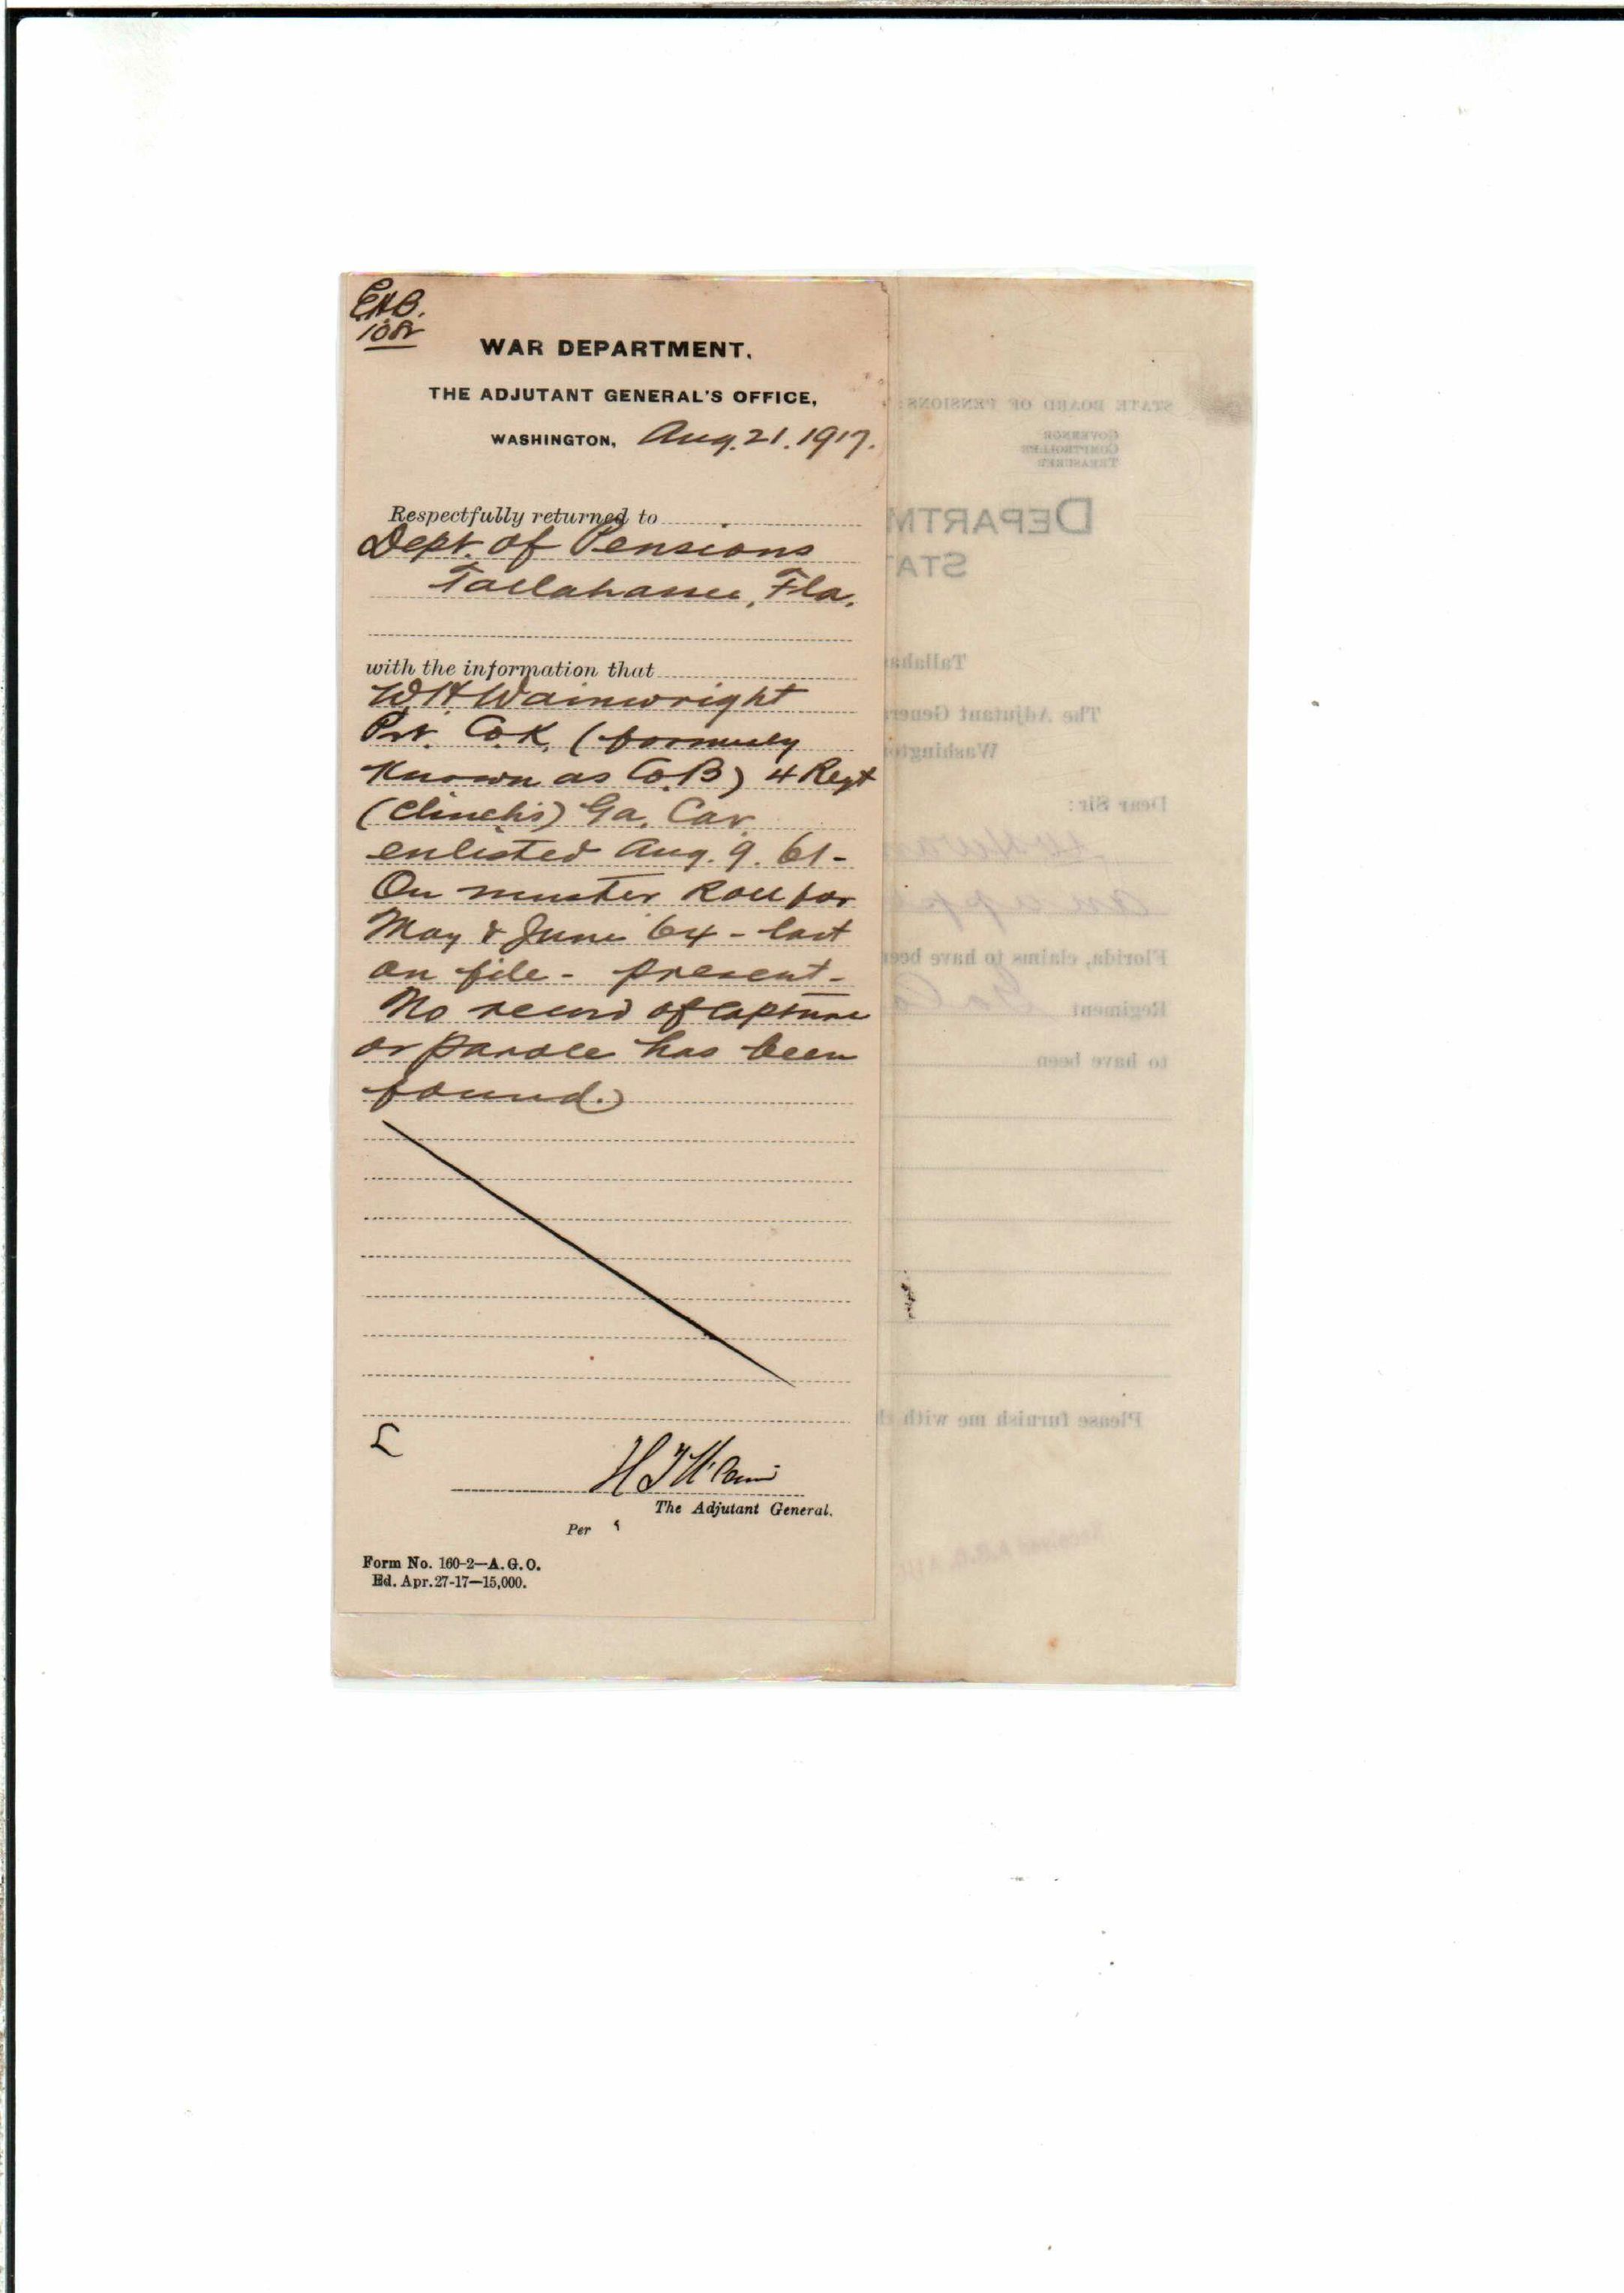 E.H.B.
108
WAR DEPARTMENT,
THE ADJUTANT GENERAL'S OFFICE,
WASHINGTON, Aug. 21. 1917.
Respectfully returned to
Dept. of Pensions
Tallahassee, Fla.
with the information that
W H Wainwright
Pvt. Co. K, (formerly
known as Co. B) 4 Regt
(Clinch's) Ga. Cav.
enlisted Aug. 9. 61 -
On muster Roll for
May & June 64 - last
on file - present -
No record of capture
or parole has been
found.
£
The Adjutant General.
Per
Form No. 160-2—A.G.O.
Ed. Apr. 27-17—15,000.
STATE BOARD OF PENSIONS:
GOVERNOR
COMPTROLLER
TREASURER
DEPARTM
STA
Tallaha
The Adjutant Gener
Washingto
Dear Sir:
an app
Florida, claims to have bee
Regiment Ga
to have been
Please furnish me with th